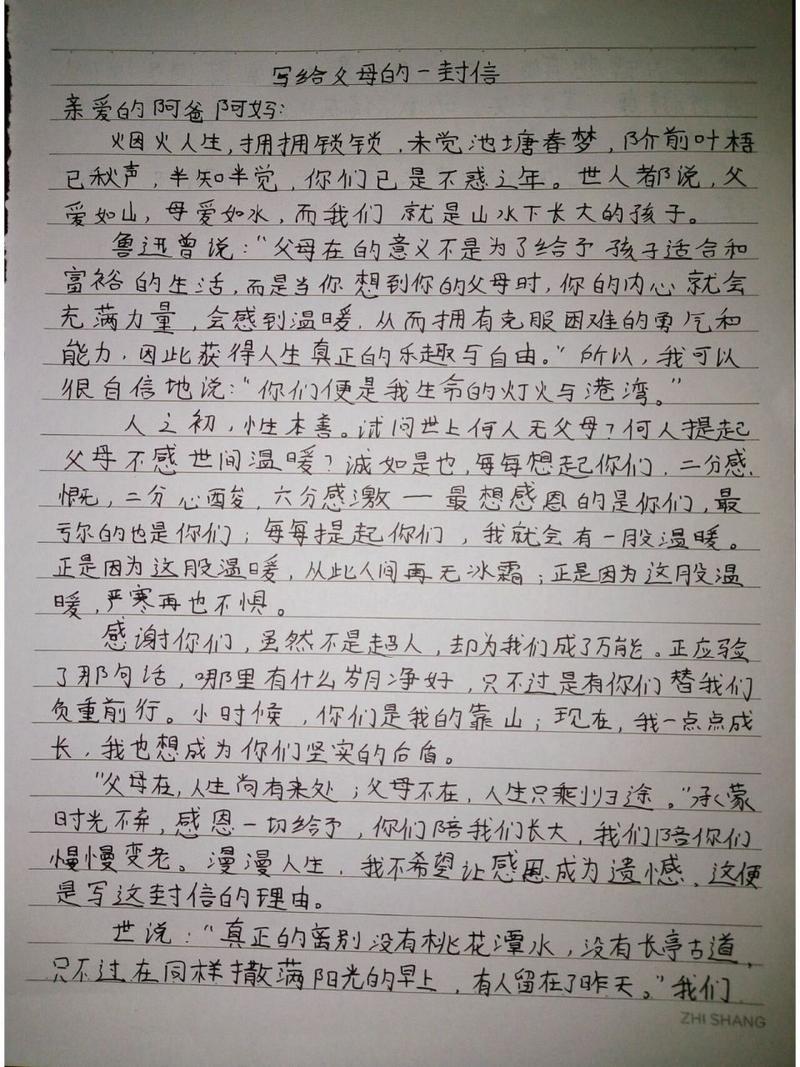 写给父母的一封信
亲爱的阿爸阿妈:
烟火人生,拥拥锁锁,未觉池塘春梦,阶前叶梧
已秋声,半知半觉,你们已是不惑之年。世人都说,父
爱如山,母爱如水,而我们就是山水下长大的孩子。
鲁迅曾说:“父母在的意义不是为了给予孩子适合和
富裕的生活,而是当你想到你的父母时,你的内心就会
充满力量,会感到温暖,从而拥有克服困难的勇气和
能力,因此获得人生真正的乐趣与自由。”所以,我可以
很自信地说:“你们便是我生命的灯火与港湾。”
人之初,性本善。试问世上何人无父母?何人提起
父母不感世间温暖?诚如是也,每每想起你们,二分感
慨,二分心酸,六分感激——最想感恩的是你们,最
亏欠的也是你们;每每提起你们,我就会有一股温暖。
正是因为这股温暖,从此人间再无冰霜;正是因为这股温
暖,严寒再也不惧。
感谢你们,虽然不是超人,却为我们成了万能。正应验
了那句话,哪里有什么岁月净好,只不过是有你们替我们
负重前行。小时候,你们是我的靠山;现在,我一点点成
长,我也想成为你们坚实的后盾。
“父母在,人生尚有来处;父母不在,人生只剩归途。”承蒙
时光不弃,感恩一切给予,你们陪我们长大,我们陪你们
慢慢变老。漫漫人生,我不希望让感恩成为遗憾,这便
是写这封信的理由。
世说:“真正的离别没有桃花潭水,没有长亭古道,
只不过在同样撒满阳光的早上,有人留在了昨天。”我们
ZHI SHANG